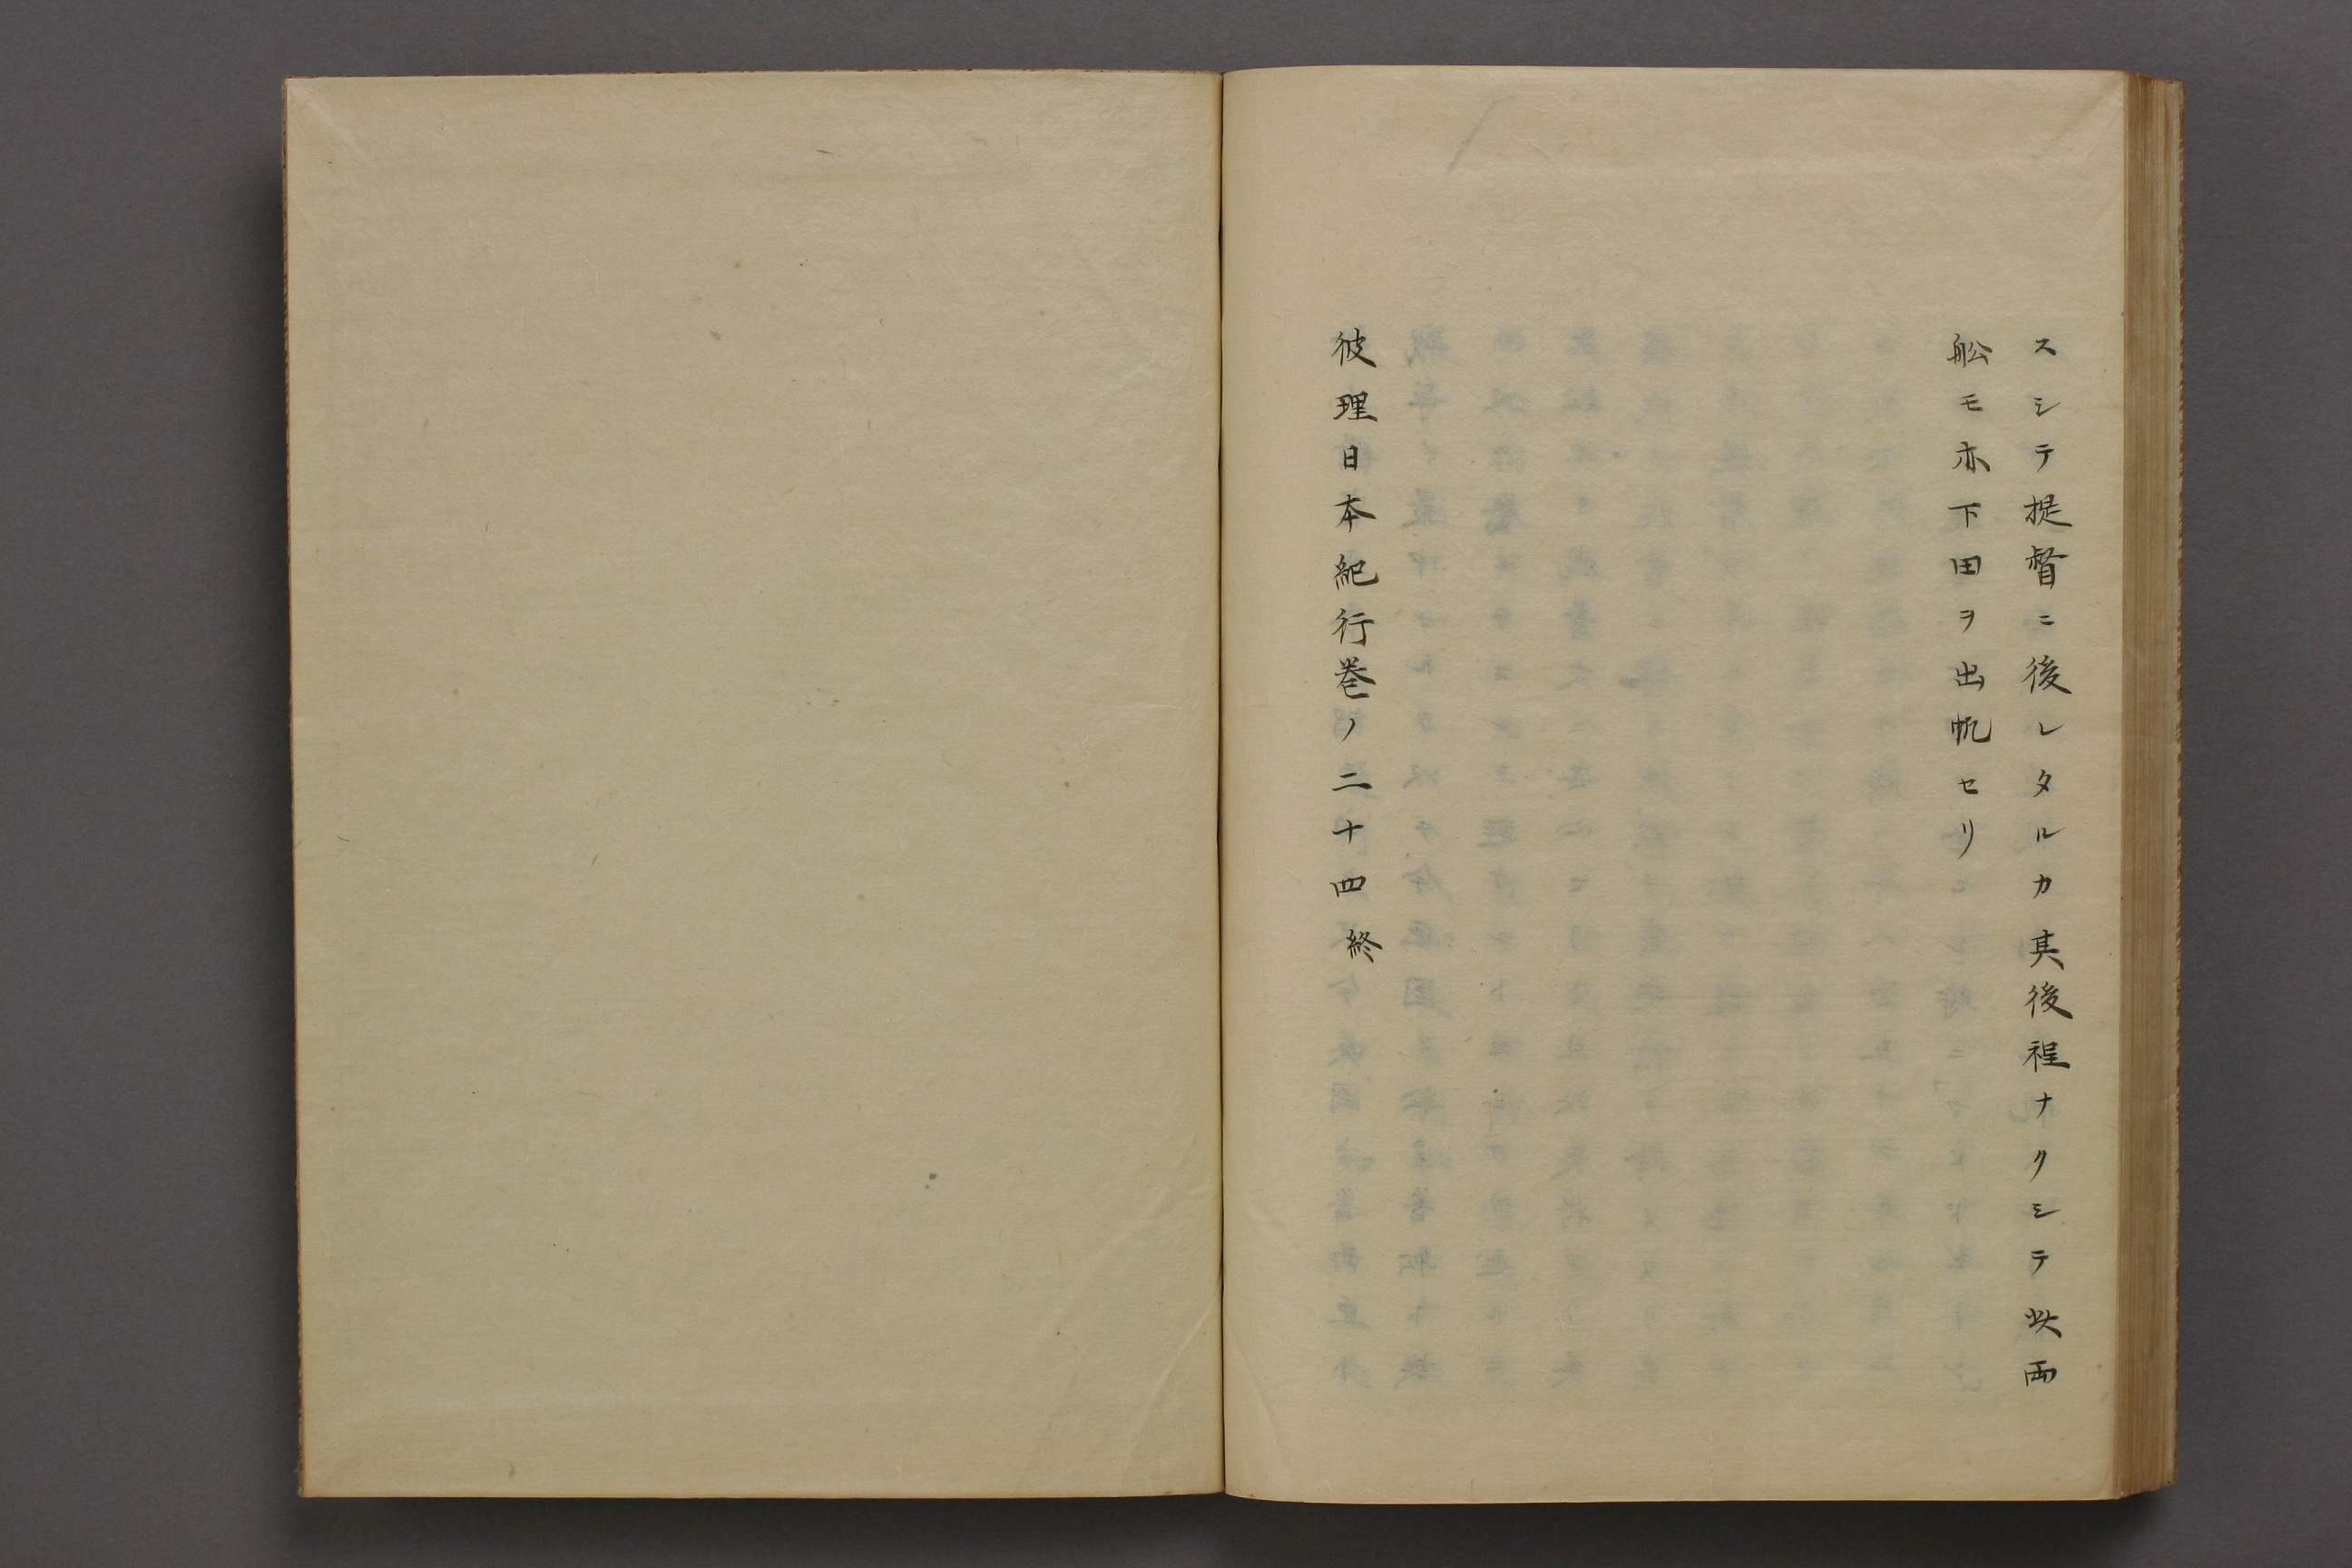 スシテ提督ニ後レタルカ其後程ナクシテ此両
舩モ亦下田ヲ出帆セリ
彼理日本紀行巻ノ二十四終